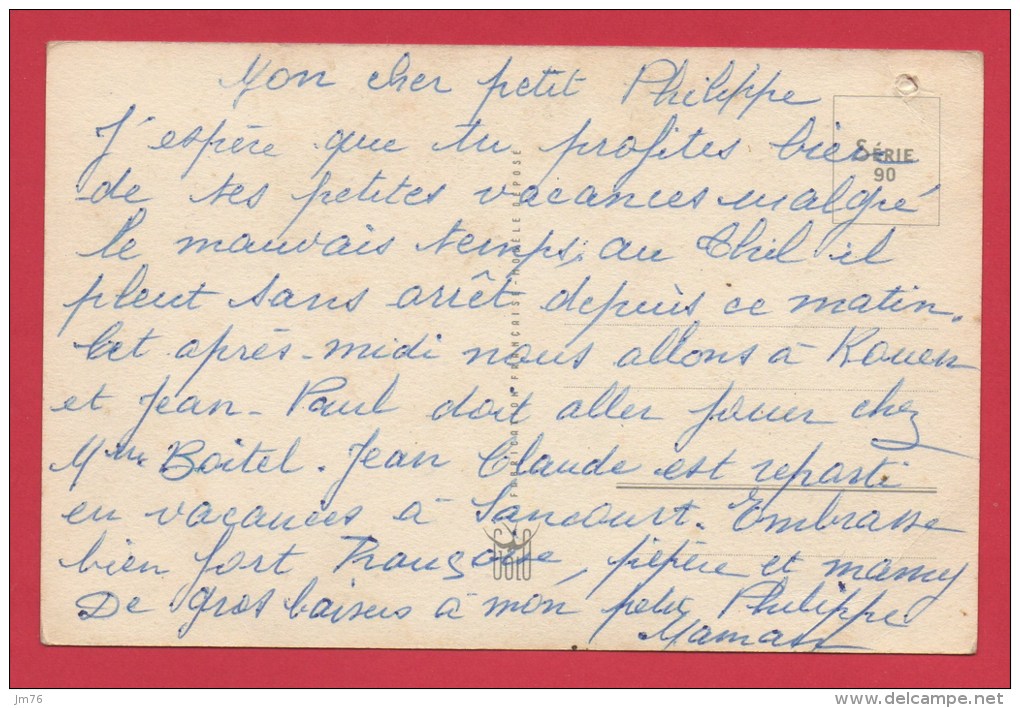 Mon cher petit Philippe
J'espère que tu profites bien
de tes petites vacances malgré
le mauvais temps, au Thil il
pleut sans arrêt depuis ce matin.
Cet après-midi nous allons à Rouen
et Jean-Paul doit aller jouer chez
Mme Boitel. Jean Claude est reparti
en vacances à Sancourt. Embrasse
bien fort Françoise, pépère et mamy
De gros baisers à mon petit Philippe
Maman
SÉRIE
90
FABRICATION FRANÇAISE - MODÈLE DÉPOSÉ
jm76
www.delcampe.net